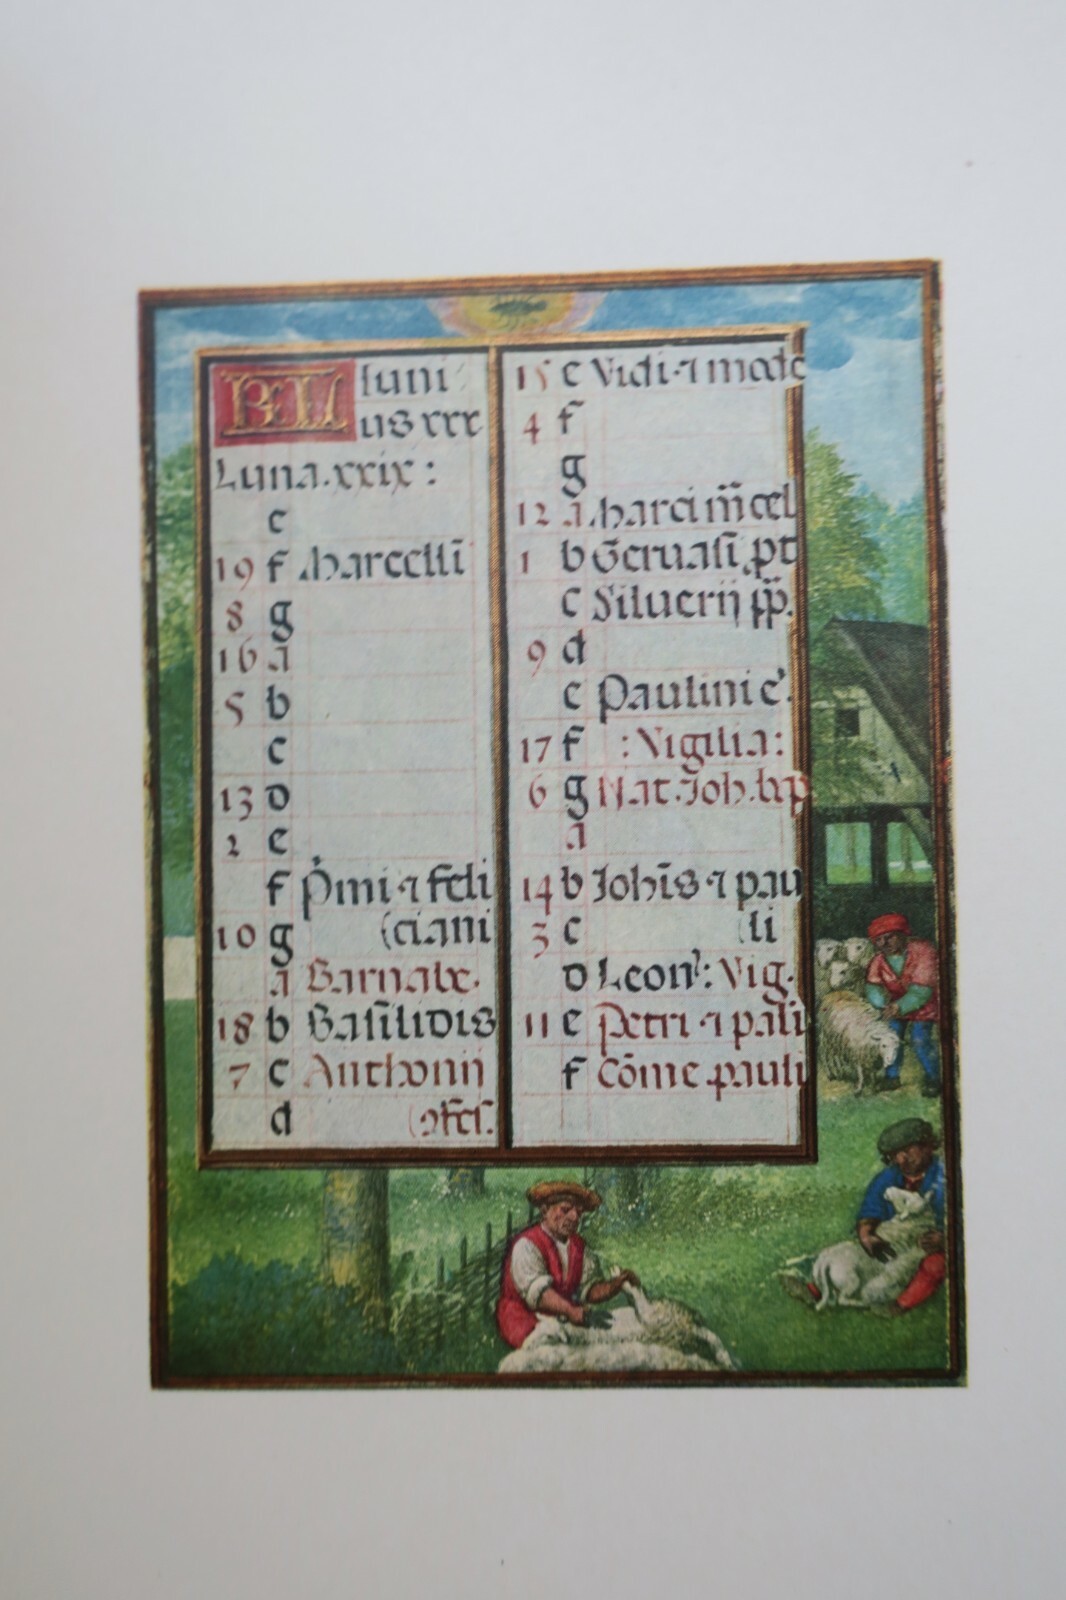 KL Iuni
us xxx
Luna. xxix :
e
19 f Marcelli
8 g
16 a
5 b
c
13 d
2 e
f P̓mi ⁊ feli
10 g (ciani
a Barnabe.
18 b Basilidis
7 c Anthonii
d (ꝯfes.
15 e Viti ⁊ mode
4 f
g
12 a Marci m̄ cel
1 b Geruasī. pt
c Siluerij pp̄.
9 d
e Paulini e
17 f : Vigilia :
6 g Nat. Joh. bp
a
14 b Joh̄is ⁊ pau
3 c (li
d Leon: Vig.
11 e Petri ⁊ pali
f Cōme. pauli